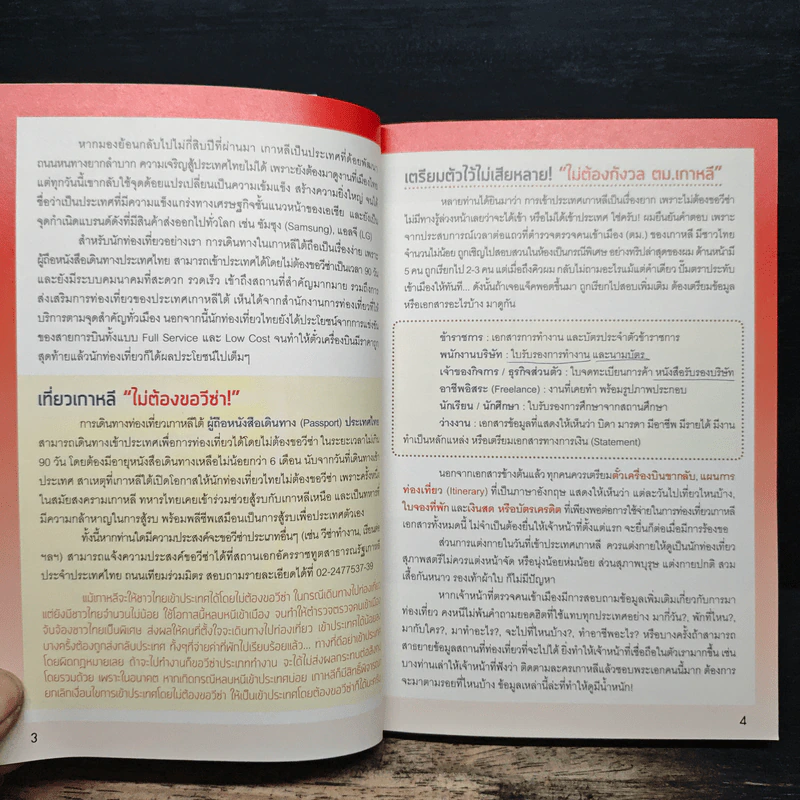 หากมองย้อนกลับไปไม่กี่สิบปีที่ผ่านมา เกาหลีเป็นประเทศที่ด้อยพัฒนา
ถนนหนทางยากลำบาก ความเจริญสู้ประเทศไทยไม่ได้ เพราะยังต้องมาดูงานที่เมืองไทย
แต่ทุกวันนี้เขากลับใช้จุดด้อยแปรเปลี่ยนเป็นความเข้มแข็ง สร้างความยิ่งใหญ่ จนได้
ชื่อว่าเป็นประเทศที่มีความแข็งแกร่งทางเศรษฐกิจชั้นแนวหน้าของเอเชีย และยังเป็น
จุดกำเนิดแบรนด์ดังที่มีสินค้าส่งออกไปทั่วโลก เช่น ซัมซุง (Samsung), แอลจี (LG)
สำหรับนักท่องเที่ยวอย่างเรา การเดินทางในเกาหลีใต้ถือเป็นเรื่องง่าย เพราะ
ผู้ถือหนังสือเดินทางประเทศไทย สามารถเข้าประเทศได้โดยไม่ต้องขอวีซ่าเป็นเวลา 90 วัน
และยังมีระบบคมนาคมที่สะดวก รวดเร็ว เข้าถึงสถานที่สำคัญมากมาย รวมถึงการ
ส่งเสริมการท่องเที่ยวของประเทศเกาหลีใต้ เห็นได้จากสำนักงานการท่องเที่ยวที่ให้
บริการตามจุดสำคัญทั่วเมือง นอกจากนี้นักท่องเที่ยวไทยยังได้ประโยชน์จากการแข่งขัน
ของสายการบินทั้งแบบ Full Service และ Low Cost จนทำให้ตั๋วเครื่องบินมีราคาถูก
สุดท้ายแล้วนักท่องเที่ยวก็ได้ผลประโยชน์ไปเต็มๆ
เที่ยวเกาหลี “ไม่ต้องขอวีซ่า!”
การเดินทางท่องเที่ยวเกาหลีใต้ ผู้ถือหนังสือเดินทาง (Passport) ประเทศไทย
สามารถเดินทางเข้าประเทศเพื่อการท่องเที่ยวได้โดยไม่ต้องขอวีซ่า ในระยะเวลาไม่เกิน
90 วัน โดยต้องมีอายุหนังสือเดินทางเหลือไม่น้อยกว่า 6 เดือน นับจากวันที่เดินทางเข้า
ประเทศ สาเหตุที่เกาหลีใต้เปิดโอกาสให้นักท่องเที่ยวไทยไม่ต้องขอวีซ่า เพราะครั้งหนึ่ง
ในสมัยสงครามเกาหลี ทหารไทยเคยเข้าร่วมช่วยสู้รบกับเกาหลีเหนือ และเป็นทหารที่
มีความกล้าหาญในการสู้รบ พร้อมพลีชีพเสมือนเป็นการสู้รบเพื่อประเทศตัวเอง
ทั้งนี้หากท่านใดมีความประสงค์จะขอวีซ่าประเภทอื่นๆ (เช่น วีซ่าทำงาน, เรียนต่อ
ฯลฯ) สามารถแจ้งความประสงค์ขอวีซ่าได้ที่สถานเอกอัครราชทูตสาธารณรัฐเกาหลี
ประจำประเทศไทย ถนนเทียมร่วมมิตร สอบถามรายละเอียดได้ที่ 02-2477537-39
แม้เกาหลีจะให้ชาวไทยเข้าประเทศได้โดยไม่ต้องขอวีซ่า ในกรณีเดินทางไปท่องเที่ยว
แต่ยังมีชาวไทยจำนวนไม่น้อย ใช้โอกาสนี้หลบหนีเข้าเมือง จนทำให้ตำรวจตรวจคนเข้าเมือง
จับจ้องชาวไทยเป็นพิเศษ ส่งผลให้คนที่ตั้งใจจะเดินทางไปท่องเที่ยว เข้าประเทศได้น้อยลง
บางครั้งต้องถูกส่งกลับประเทศ ทั้งๆที่จ่ายค่าที่พักไปเรียบร้อยแล้ว... ทางที่ดีอย่าเข้าประเทศ
โดยผิดกฎหมายเลย ถ้าจะไปทำงานก็ขอวีซ่าประเภททำงาน จะได้ไม่ส่งผลกระทบต่อสังคม
โดยรวมด้วย เพราะในอนาคต หากเกิดกรณีหลบหนีเข้าประเทศบ่อย เกาหลีก็มีสิทธิ์พิจารณา
ยกเลิกเงื่อนไขการเข้าประเทศโดยไม่ต้องขอวีซ่า ให้เป็นเข้าประเทศโดยต้องขอวีซ่าก็ได้นะครับ
3
เตรียมตัวไว้ไม่เสียหลาย! “ไม่ต้องกังวล ตม.เกาหลี”
หลายท่านได้ยินมาว่า การเข้าประเทศเกาหลีเป็นเรื่องยาก เพราะไม่ต้องขอวีซ่า
ไม่มีทางรู้ล่วงหน้าเลยว่าจะได้เข้า หรือไม่ได้เข้าประเทศ ใช่ครับ! ผมยืนยันคำตอบ เพราะ
จากประสบการณ์เวลาต่อแถวที่ตำรวจตรวจคนเข้าเมือง (ตม.) ของเกาหลี มีชาวไทย
จำนวนไม่น้อย ถูกเชิญไปสอบสวนในห้องเป็นกรณีพิเศษ อย่างทริปล่าสุดของผม ด้านหน้ามี
5 คน ถูกเรียกไป 2-3 คน แต่เมื่อถึงคิวผม กลับไม่ถามอะไรแม้แต่คำเดียว ปั๊มตราประทับ
เข้าเมืองให้ทันที... ดังนั้นถ้าเจอแจ็คพอตขึ้นมา ถูกเรียกไปสอบเพิ่มเติม ต้องเตรียมข้อมูล
หรือเอกสารอะไรบ้าง มาดูกัน
ข้าราชการ : เอกสารการทำงาน และบัตรประจำตัวข้าราชการ
พนักงานบริษัท : ใบรับรองการทำงาน และนามบัตร
เจ้าของกิจการ / ธุรกิจส่วนตัว : ใบจดทะเบียนการค้า หนังสือรับรองบริษัท
อาชีพอิสระ (Freelance) : งานที่เคยทำ พร้อมรูปภาพประกอบ
นักเรียน / นักศึกษา : ใบรับรองการศึกษาจากสถานศึกษา
ว่างงาน : เอกสารข้อมูลที่แสดงให้เห็นว่า บิดา มารดา มีอาชีพ มีรายได้ มีงาน
ทำเป็นหลักแหล่ง หรือเตรียมเอกสารทางการเงิน (Statement)
นอกจากเอกสารข้างต้นแล้ว ทุกคนควรเตรียมตั๋วเครื่องบินขากลับ, แผนการ
ท่องเที่ยว (Itinerary) ที่เป็นภาษาอังกฤษ แสดงให้เห็นว่า แต่ละวันไปเที่ยวไหนบ้าง,
ใบจองที่พัก และเงินสด หรือบัตรเครดิต ที่เพียงพอต่อการใช้จ่ายในการท่องเที่ยวเกาหลี
เอกสารทั้งหมดนี้ ไม่จำเป็นต้องยื่นให้เจ้าหน้าที่ตั้งแต่แรก จะยื่นก็ต่อเมื่อมีการร้องขอ
ส่วนการแต่งกายในวันที่เข้าประเทศเกาหลี ควรแต่งกายให้ดูเป็นนักท่องเที่ยว
สุภาพสตรีไม่ควรแต่งหน้าจัด หรือนุ่งน้อยห่มน้อย ส่วนสุภาพบุรุษ แต่งกายปกติ สวม
เสื้อกันหนาว รองเท้าผ้าใบ ก็ไม่มีปัญหา
หากเจ้าหน้าที่ตรวจคนเข้าเมืองมีการสอบถามข้อมูลเพิ่มเติมเกี่ยวกับการมา
ท่องเที่ยว คงหนีไม่พ้นคำถามยอดฮิตที่ใช้แทบทุกประเทศอย่าง มากี่วัน?, พักที่ไหน?,
มากับใคร?, มาทำอะไร?, จะไปที่ไหนบ้าง?, ทำอาชีพอะไร? หรือบางครั้งถ้าสามารถ
สาธยายข้อมูลสถานที่ท่องเที่ยวที่จะไปได้ ยิ่งทำให้เจ้าหน้าที่เชื่อถือในตัวเรามากขึ้น เช่น
บางท่านเล่าให้เจ้าหน้าที่ฟังว่า ติดตามละครเกาหลีแล้วชอบพระเอกคนนี้มาก ต้องการ
จะมาตามรอยที่ไหนบ้าง ข้อมูลเหล่านี้ล่ะที่ทำให้ดูมีน้ำหนัก!
4